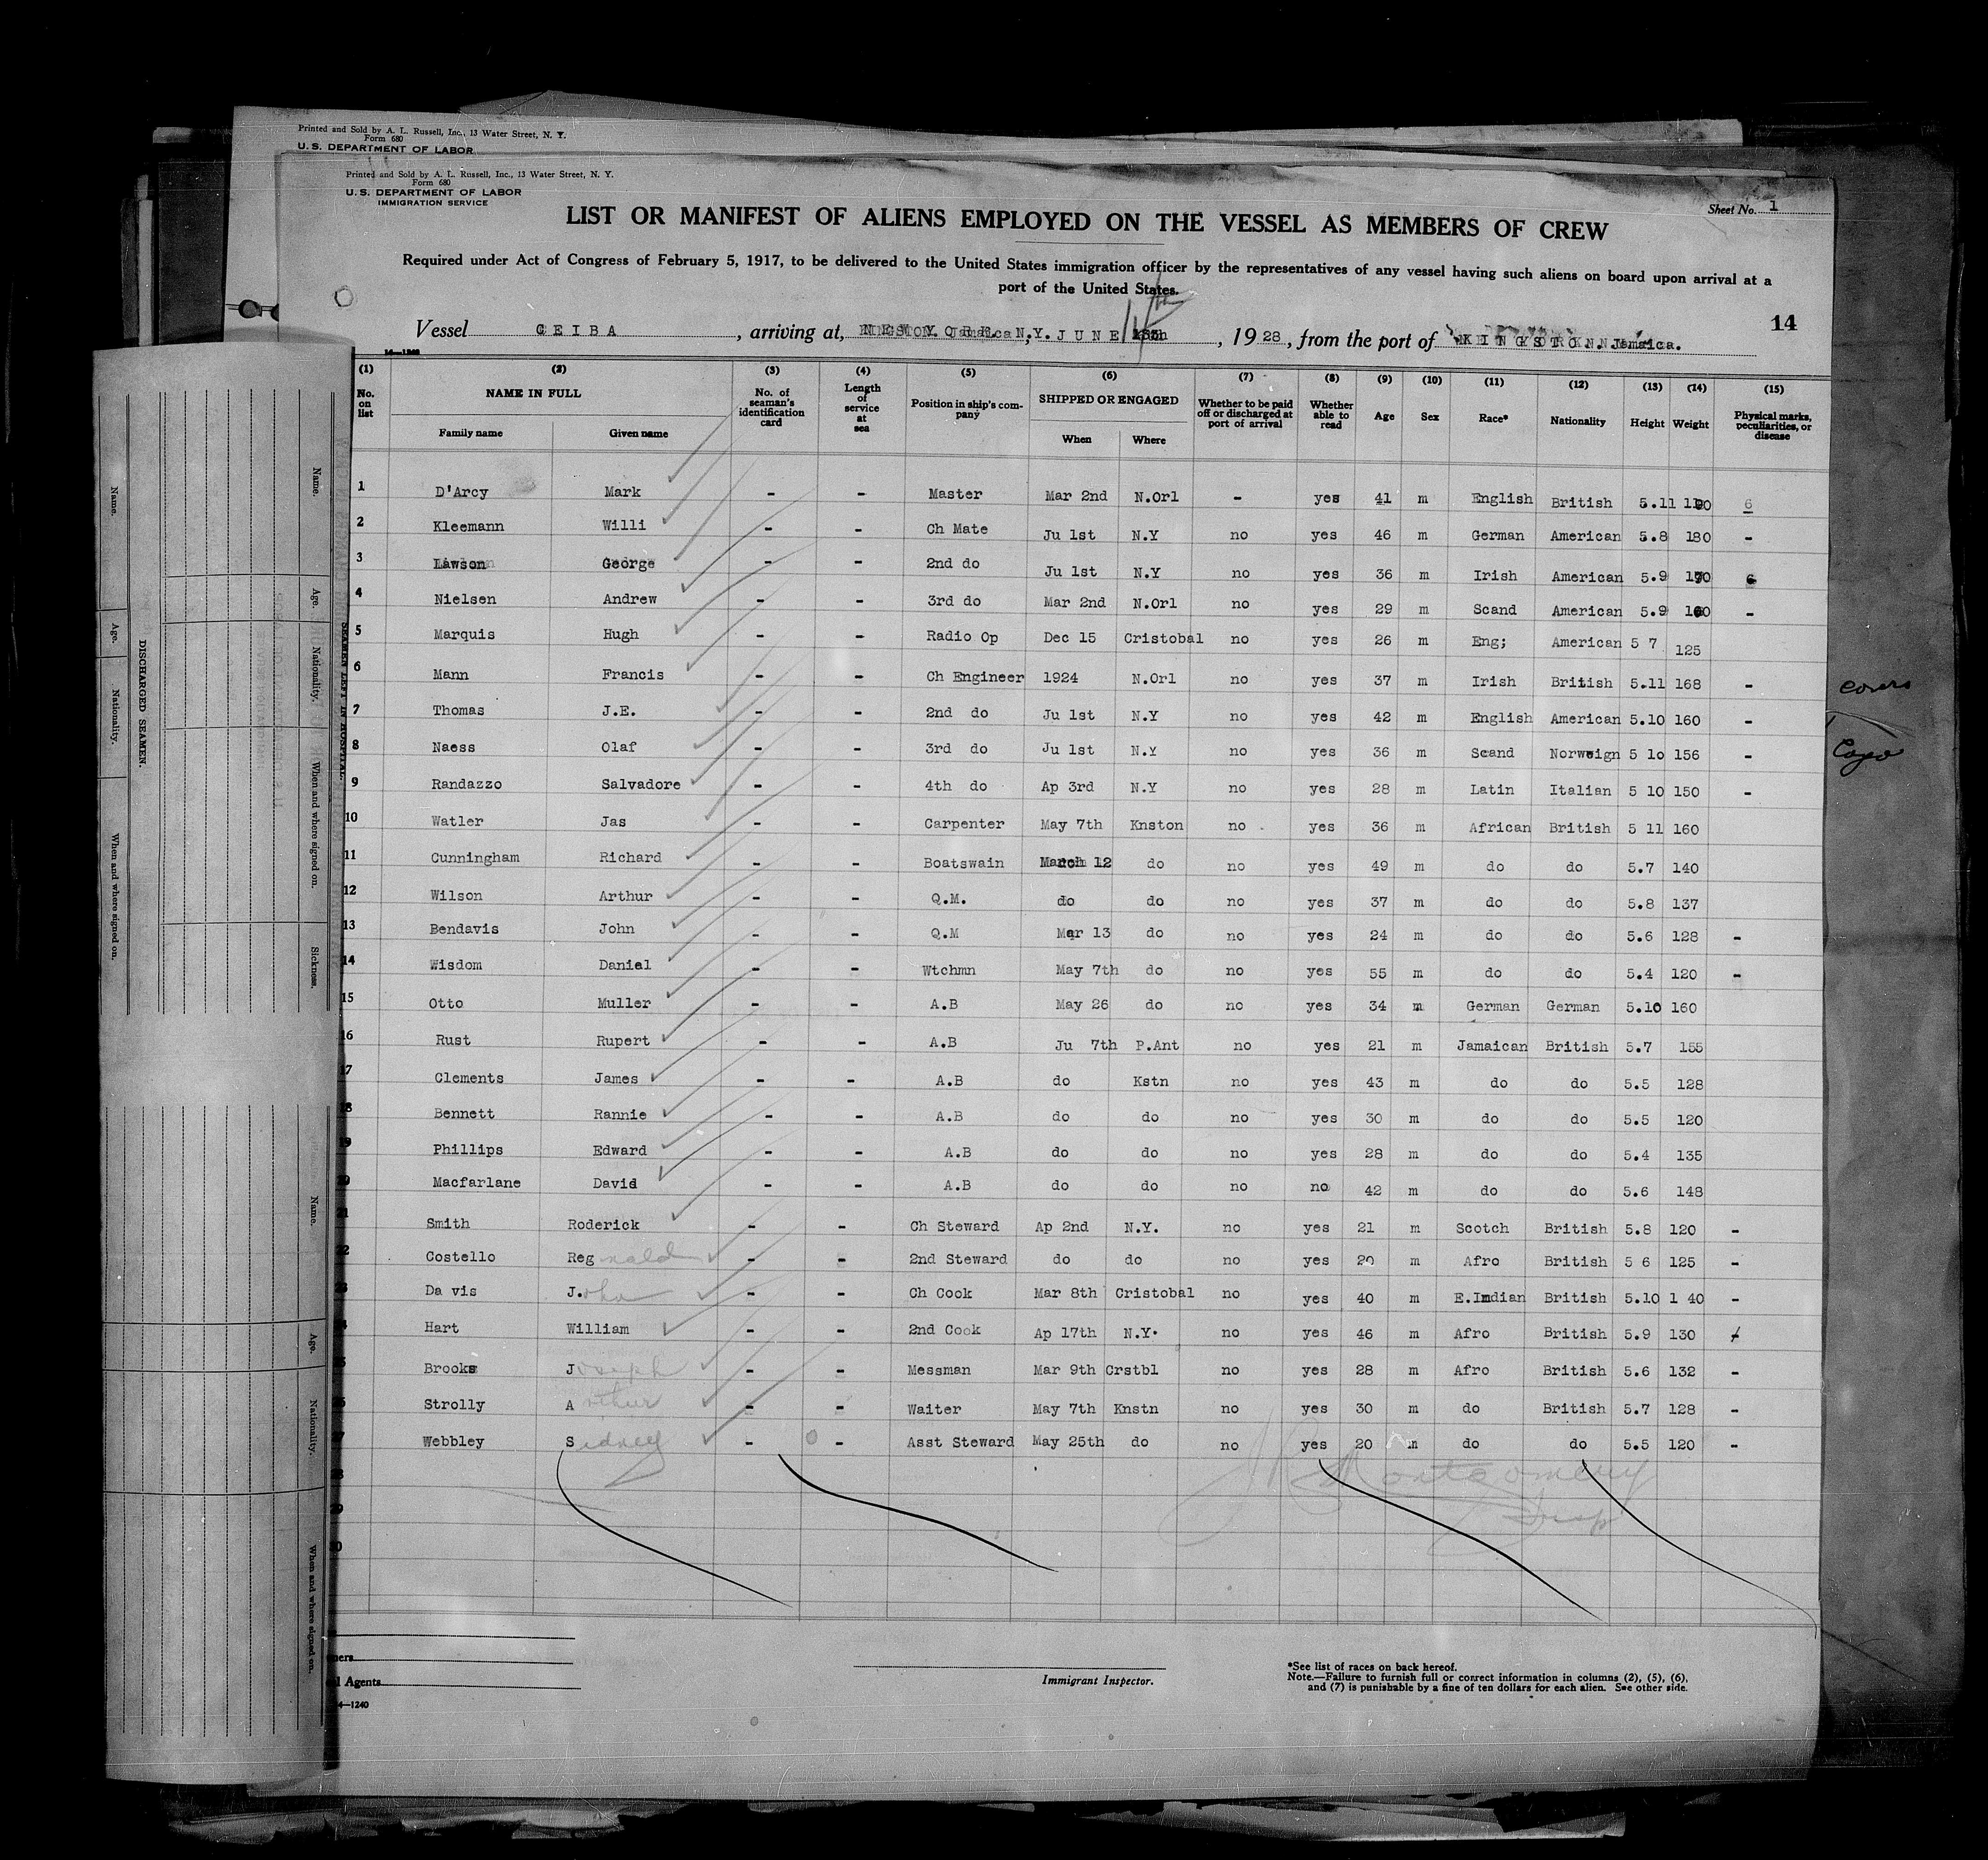 Printed and Sold by A. L. Russell, Inc., 13 Water Street, N. Y.
Form 680
U. S. DEPARTMENT OF LABOR
Printed and Sold by A. L. Russell, Inc., 13 Water Street, N. Y.
Form 680
U. S. DEPARTMENT OF LABOR
IMMIGRATION SERVICE
Sheet No. 1
LIST OR MANIFEST OF ALIENS EMPLOYED ON THE VESSEL AS MEMBERS OF CREW
Required under Act of Congress of February 5, 1917, to be delivered to the United States immigration officer by the representatives of any vessel having such aliens on board upon arrival at a
port of the United States.
14
Vessel CEIBA, arriving at, NEW YORK. N.Y. JUNE 11th, 1928, from the port of KINGSTON. Jamaica.
(1) (2) (3) (4) (5) (6) (7) (8) (9) (10) (11) (12) (13) (14) (15)
No. on list NAME IN FULL No. of seaman's identification card Length of service at sea Position in ship's company SHIPPED OR ENGAGED Whether to be paid off or discharged at port of arrival Whether able to read Age Sex Race* Nationality Height Weight Physical marks, peculiarities, or disease
Family name Given name When Where
1 D'Arcy Mark - - Master Mar 2nd N.Orl - yes 41 m English British 5.11 6
2 Kleemann Willi - - Ch Mate Ju 1st N.Y no yes 46 m German American 5.8 180 -
3 Lawson George - - 2nd do Ju 1st N.Y no yes 36 m Irish American 5.9
4 Nielsen Andrew - - 3rd do Mar 2nd N.Orl no yes 29 m Scand American 5.9 -
5 Marquis Hugh - - Radio Op Dec 15 Cristobal no yes 26 m Eng; American 5 7 125
6 Mann Francis - - Ch Engineer 1924 N.Orl no yes 37 m Irish British 5.11 168 -
7 Thomas J.E. - - 2nd do Ju 1st N.Y no yes 42 m English American 5.10 160 -
8 Naess Olaf - - 3rd do Ju 1st N.Y no yes 36 m Scand Norweign 5 10 156 -
9 Randazzo Salvadore - - 4th do Ap 3rd N.Y no yes 28 m Latin Italian 5 10 150 -
10 Watler Jas - - Carpenter May 7th Knston no yes 36 m African British 5 11 160
11 Cunningham Richard - - Boatswain March 12 do no yes 49 m do do 5.7 140
12 Wilson Arthur - - Q.M. do do no yes 37 m do do 5.8 137
13 Bendavis John - - Q.M Mar 13 do no yes 24 m do do 5.6 128 -
14 Wisdom Daniel - - Wtchmn May 7th do no yes 55 m do do 5.4 120 -
15 Otto Muller - - A.B May 26 do no yes 34 m German German 5.10 160
16 Rust Rupert - - A.B Ju 7th P.Ant no yes 21 m Jamaican British 5.7 155
17 Clements James - - A.B do Kstn no yes 43 m do do 5.5 128
18 Bennett Rannie - - A.B do do no yes 30 m do do 5.5 120
19 Phillips Edward - - A.B do do no yes 28 m do do 5.4 135
20 Macfarlane David - - A.B do do no no 42 m do do 5.6 148
21 Smith Roderick - - Ch Steward Ap 2nd N.Y. no yes 21 m Scotch British 5.8 120 -
22 Costello Reg nald - - 2nd Steward do do no yes 20 m Afro British 5 6 125 -
23 Da vis J.ohn - - Ch Cook Mar 8th Cristobal no yes 40 m E.Indian British 5.10 1 40 -
24 Hart William - - 2nd Cook Ap 17th N.Y. no yes 46 m Afro British 5.9 130
25 Brooks Joseph - - Messman Mar 9th Crstbl no yes 28 m Afro British 5.6 132 -
26 Strolly Arthur - - Waiter May 7th Knstn no yes 30 m do British 5.7 128 -
27 Webbley Sidney - - Asst Steward May 25th do no yes 20 m do do 5.5 120 -
28
29
30
Montgomery
Insp
Immigrant Inspector.
*See list of races on back hereof.
Note.—Failure to furnish full or correct information in columns (2), (5), (6),
and (7) is punishable by a fine of ten dollars for each alien. See other side.
Agents
4—1240
DISCHARGED SEAMEN.
Name. Age. Nationality. When and where signed on.
SEAMEN LEFT IN HOSPITAL.
Name. Age. Nationality. When and where signed on. Sickness.
Name. Age. Nationality. When and where signed on.